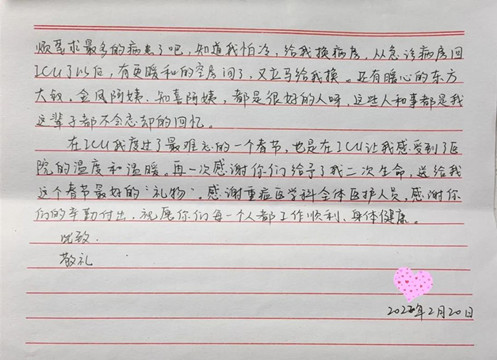 烦要求最多的病患了吧，知道我怕冷，给我换病房，从急诊病房回
ICU了以后，有更暖和的空房间了，又立马给我换。还有暖心的东方
大叔，金凤阿姨、知喜阿姨，都是很好的人呀，这些人和事都是我
这辈子都不会忘却的回忆。
在ICU我度过了最难忘的一个春节，也是在ICU让我感受到了医
院的温度和温暖。再一次感谢你们给予了我二次生命，送给我
这个春节最好的“礼物”。感谢重症医学科全体医护人员，感谢你
们的辛勤付出，祝愿你们每一个人都工作顺利、身体健康。
此致
敬礼
年2月20日